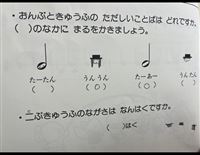 ・おんぷときゅうふの ただしいことばは どれですか。
( )のなかに まるをかきましょう。
たーたん うんうん たーあー うんたん
( ) (○) (○) ( )
・二ぶきゅうふのながさは なんはくですか。
( )はく